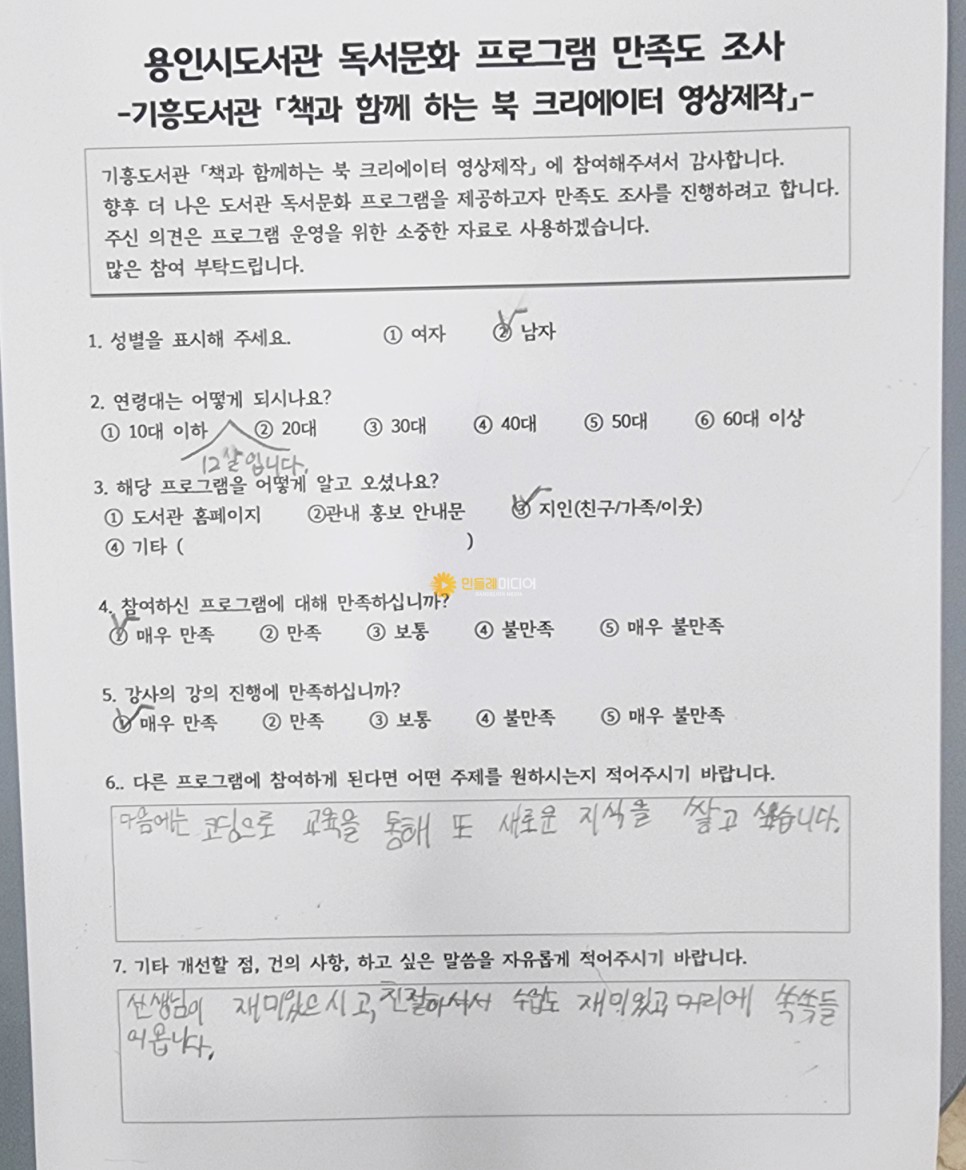 용인시도서관 독서문화 프로그램 만족도 조사
-기흥도서관 「책과 함께 하는 북 크리에이터 영상제작」-
기흥도서관 「책과 함께하는 북 크리에이터 영상제작」 에 참여해주셔서 감사합니다.
향후 더 나은 도서관 독서문화 프로그램을 제공하고자 만족도 조사를 진행하려고 합니다.
주신 의견은 프로그램 운영을 위한 소중한 자료로 사용하겠습니다.
많은 참여 부탁드립니다.
1. 성별을 표시해 주세요. ① 여자 ② 남자
2. 연령대는 어떻게 되시나요?
① 10대 이하 ② 20대 ③ 30대 ④ 40대 ⑤ 50대 ⑥ 60대 이상
12살입니다.
3. 해당 프로그램을 어떻게 알고 오셨나요?
① 도서관 홈페이지 ②관내 홍보 안내문 ③ 지인(친구/가족/이웃)
④ 기타 ( )
민들레미디어
4. 참여하신 프로그램에 대해 만족하십니까?
① 매우 만족 ② 만족 ③ 보통 ④ 불만족 ⑤ 매우 불만족
5. 강사의 강의 진행에 만족하십니까?
① 매우 만족 ② 만족 ③ 보통 ④ 불만족 ⑤ 매우 불만족
6.. 다른 프로그램에 참여하게 된다면 어떤 주제를 원하시는지 적어주시기 바랍니다.
다음에는 코딩으로 교육을 통해 또 새로운 지식을 쌓고 싶습니다.
7. 기타 개선할 점, 건의 사항, 하고 싶은 말씀을 자유롭게 적어주시기 바랍니다.
선생님이 재미있으시고, 친절하셔서 수업도 재미있고 머리에 쏙쏙들
어옵니다.